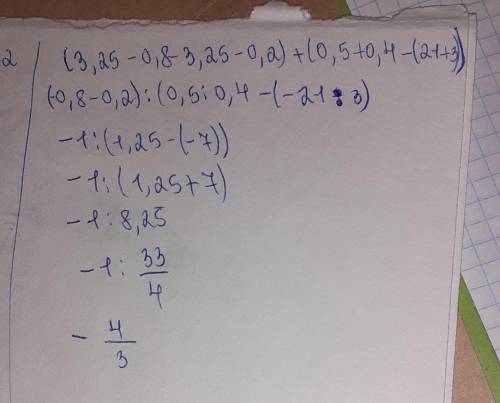 2 (3,25-0,8-3,25-0,2)+(0,5+0,4-(21+3))
(-0,8-0,2):(0,5:0,4-(-21:3)
-1:(1,25-(-7))
-1:(1,25+7)
-1:8,25
-1: 33/4
- 4/3